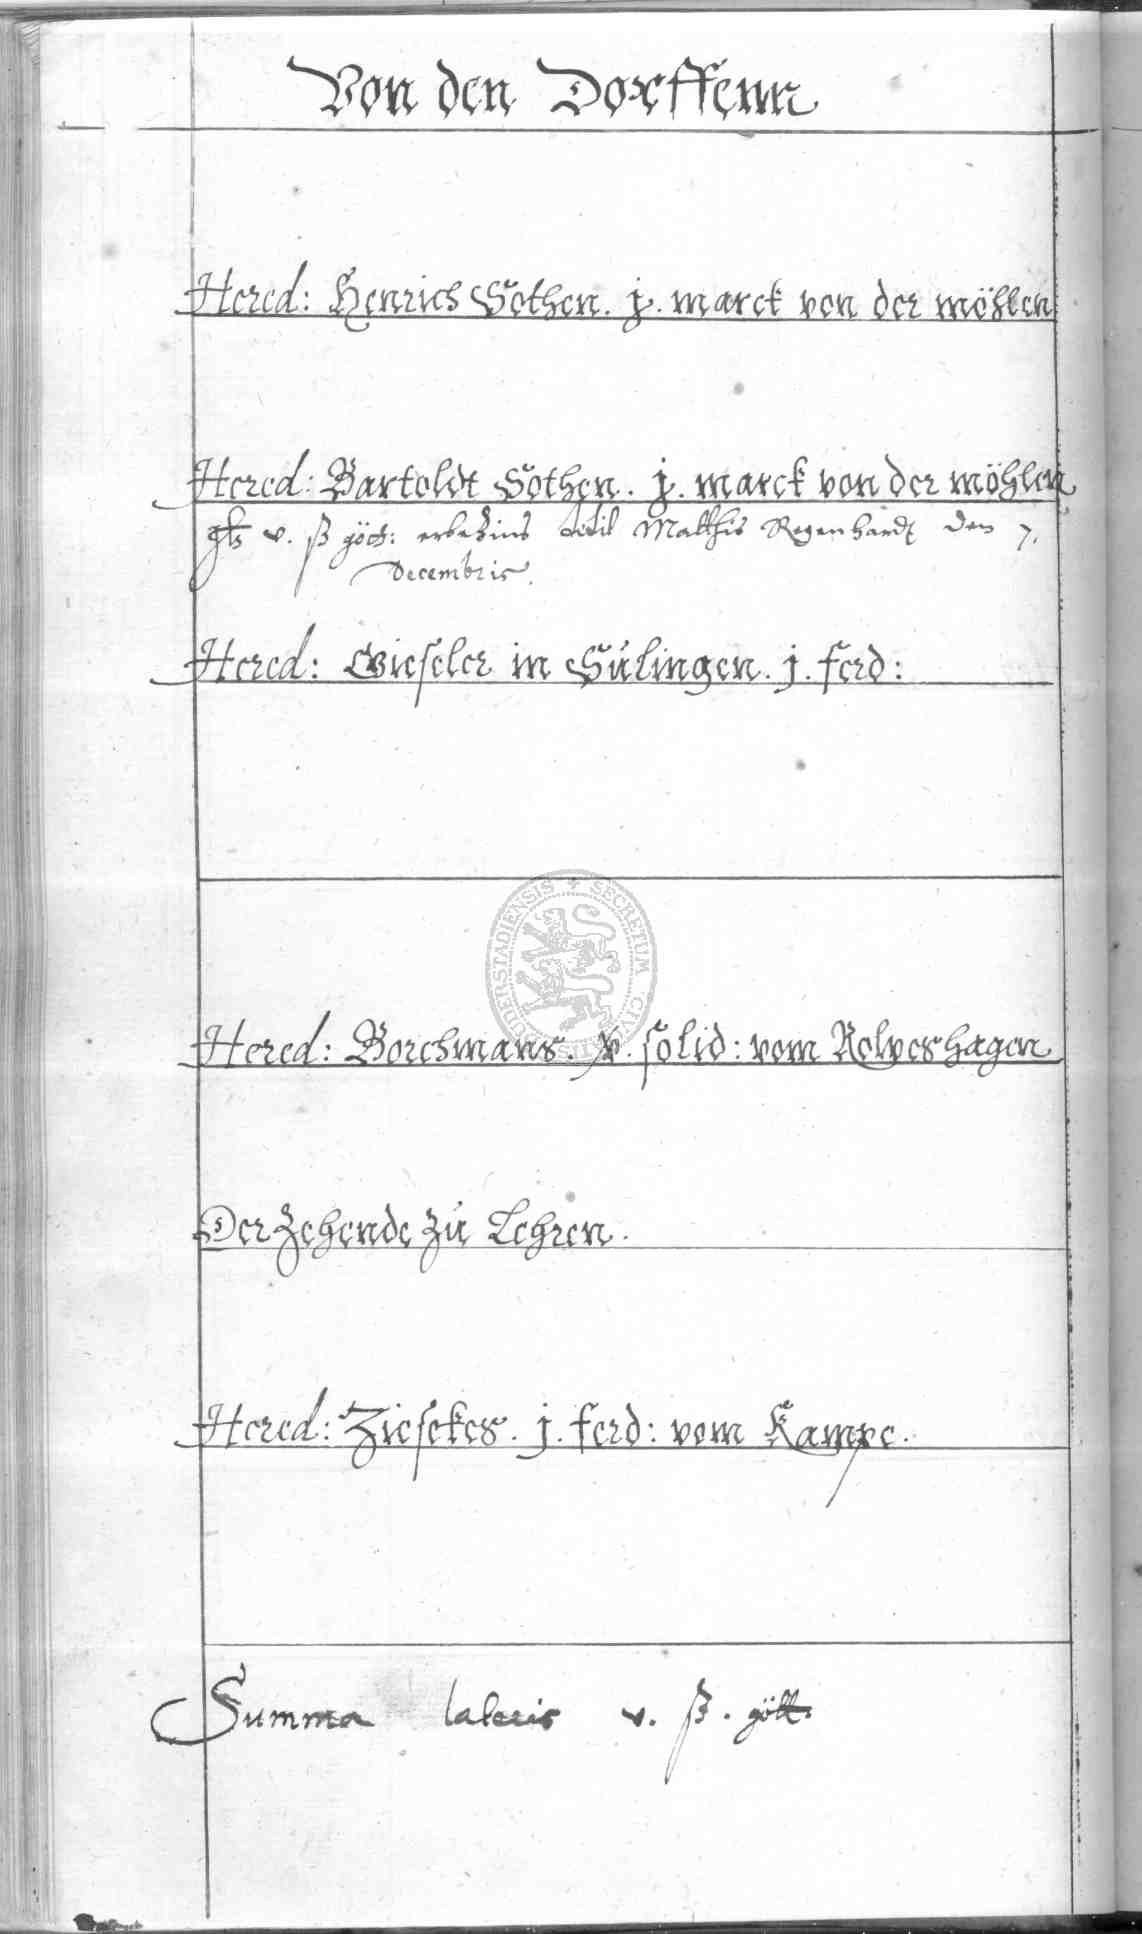 Von den Dorffenn
Hered: Henrich Sothen. j. marck von der möhlen
Hered: Bartoldt Sothen. j. marck von der möhlen
v. ß gött: erbetzins Matthis Regenhardt den 7.
Decembris.
Hered: Gieseler in Sülingen. j. ferd:
SECRETUM CIVITATIS DUDERSTADIENSIS
Hered: Borchmans. v. solid: vom Rolveshagen
Der Zehende zu Lehren.
Hered: Ziesekes. j. ferd: vom Kampe.
Summa lateris v. ß. gött.